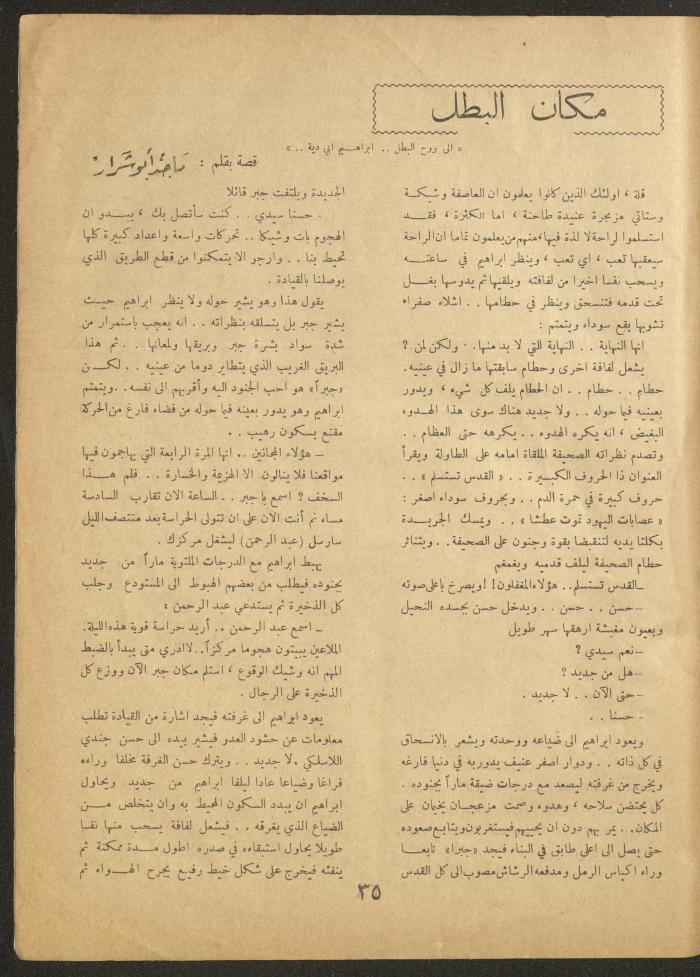 مكان البطل
« الى روح البطل .. ابراهيم ابي دية .. »
قصة بقلم : ماجد أبو شرار
قلة ، اولئك الذين كانوا يعلمون ان العاصفة وشيكة
وستاتي مزمجرة عنيدة طاحنة ، اما الكثرة ، فقد
استسلموا لراحة لا لذة فيها، منهم من يعلمون تماما ان الراحة
سيعقبها تعب ، اي تعب ، وينظر ابراهيم في ساعته
ويسحب نفسا اخيرا من لفافته ويلقيها ثم يدوسها بغل
تحت قدمه فتنسحق وينظر في حطامها .. اشلاء صفراء
تشوبها بقع سوداء ويتمتم :
انها النهاية .. النهاية التي لا بد منها. . ولكن لمن ؟
يشعل لفافة اخرى وحطام سابقتها ما زال في عينيه.
حطام .. حطام .. ان الحطام يلف كل شيء ، ويدور
بعينيه فيما حوله .. ولا جديد هناك سوى هذا الهدوء
البغيض ، انه يكره الهدوء .. يكرهه حتى العظام ..
وتصدم نظراته الصحيفة الملقاة امامه على الطاولة ويقرأ
العنوان ذا الحروف الكبيرة .. « القدس تستسلم » ..
حروف كبيرة في حمرة الدم .. وبحروف سوداء اصغر :
« عصابات اليهود تموت عطشا » .. ويمسك الجريدة
بكلتا يديه لتنقبضا بقوة وجنون على الصحيفة.. ويتناثر
حطام الصحيفة ليلف قدميه ويغمغم
ـ القدس تستسلم.. هؤلاء المغفلون ! ! ويصرخ باعلى صوته
ـ حسن .. حسن .. ويدخل حسن بجسده النحيل
وبعيون مغبشة ارهقها سهر طويل
ـ نعم سيدي ؟
ـ هل من جديد ؟
ـ حتى الآن .. لا جديد .
ـ حسنا ..
ويعود ابراهيم الى ضياعه ووحدته ويشعر بالانسحاق
في كل ذاته .. ودوار اصفر عنيف يدور به في دنيا فارغة
ويخرج من غرفته ليصعد مع درجات ضيقة ماراً بجنوده .
كل يحتضن سلاحه ، وهدوء وصمت مزعجان يخيمان على
المكان.. يمر بهم دون ان يحييهم فيستغربون ويتابع صعوده
حتى يصل الى اعلى طابق في البناء فيجد «جبرا» تابعا
وراء اكياس الرمل ومدفعه الرشاش مصوب الى كل القدس
الجديدة ويلتفت جبر قائلا
ـ حسنا سيدي .. كنت سأتصل بك ، يبدو ان
الهجوم بات وشيكا .. تحركات واسعة واعداد كبيرة كلها
تحيط بنا .. وارجو الا يتمكنوا من قطع الطريق الذي
يوصلنا بالقيادة .
يقول هذا وهو يشير حوله ولا ينظر ابراهيم حيث
يشير جبر بل يتسلقه بنظراته .. انه يعجب باستمرار من
شدة سواد بشرة جبر وبريقها ولمعانها .. ثم هذا
البريق الغريب الذي يتطاير دوما من عينيه .. لكن
«جبراً» هو احب الجنود اليه وأقربهم الى نفسه.. ويتمتم
ابراهيم وهو يدور بعينه فيما حوله من فضاء فارغ من الحركة
مقنع بسكون رهيب ..
ـ هؤلاء المجانين .. انها المرة الرابعة التي يهاجمون فيها
مواقعنا فلا ينالون الا الهزيمة والخسارة .. فلم هذا
السخف ؟ اسمع يا جبر .. الساعة الان تقارب السادسة
مساء نم أنت الان على ان تتولى الحراسة بعد منتصف الليل
سارسل (عبد الرحمن) ليشغل مركزك .
يهبط ابراهيم مع الدرجات الملتوية ماراً من جديد
بجنوده فيطلب من بعضهم الهبوط الى المستودع وجلب
كل الذخيرة ثم يستدعي عبد الرحمن :
ـ اسمع عبد الرحمن .. أريد حراسة قوية هذه الليلة.
الملاعين يبيتون هجوما مركزاً.. لا ادري متى يبدأ بالضبط
المهم انه وشيك الوقوع ، استلم مكان جبر الآن ووزع كل
الذخيرة على الرجال .
يعود ابراهيم الى غرفته فيجد اشارة من القيادة تطلب
معلومات عن حشود العدو فيشير بيده الى حسن جندي
اللاسلكي . لا جديد .. ويترك حسن الغرفة مخلفا وراءه
فراغا وضياعا عادا ليلفا ابراهيم من جديد ويحاول
ابراهيم ان يبدد السكون المحيط به وان يتخلص من
الضياع الذي يغرقه .. فيشعل لفافة يسحب منها نفسا
طويلا يحاول استبقاءه في صدره اطول مدة ممكنة ثم
ينفثه فيخرج على شكل خيط رفيع يجرح الهواء ثم
٣٥